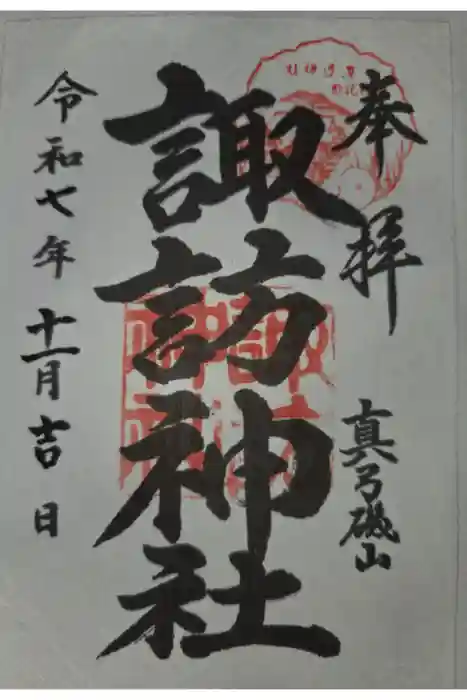 奉拝
真弓磯山
諏訪神社
令和七年十一月吉日
諏訪神社